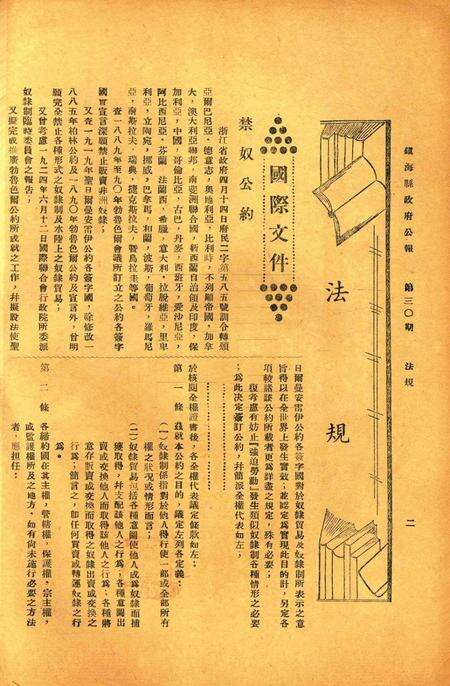 鎮海縣政府公報　第三〇期　法規　二
法規
國際文件
禁奴公約
浙江省政府四月十四日府民二字第五八五號訓令轉頒
亞爾巴尼亞、德意志、奧地利亞、比利時、不列顛帝國、加拿
大、澳大利亞聯邦、南非洲聯合國、新西蘭自治領及印度、保
加利亞、中國、哥倫比亞、古巴、丹麥、西班牙、愛沙尼亞、
阿比西尼亞、芬蘭、法蘭西、希臘、意大利、拉脫維亞、里卑
利亞、立陶宛、挪威、巴拿馬、和蘭、波斯、葡萄牙、羅馬尼
亞、南斯拉夫、瑞典、捷克斯拉夫、暨烏拉圭等國。
查一八八九年至九〇年勃魯色爾會議所訂立之公約各簽字
國曾宣言深願禁止販賣非洲奴隸；
又查一九一九年聖日爾曼安雷伊公約各簽字國，除修改一
八八五年柏林公約及一八九〇年勃魯色爾公約及宣言外，曾明
願完全禁止各種形式之奴隸制及水陸上之奴隸貿易；
又曾考慮一九二四年六月十二日國際聯合會行政院所委派
奴隸制臨時委員會之報告；
又擬完成并擴充勃魯色爾公約所成就之工作，并擬設法使聖
日爾曼安雷伊公約各簽字國對於奴隸貿易及奴隸制所表示之意
旨得以在全世界上發生實效；並認定爲實現此目的計，另定各
項較該該公約所載者更爲詳盡之規定，殊有必要；
復考慮有妨止「强迫勞動」發生類似奴隸制各種情形之必要
；爲此決定簽訂公約，幷簡派全權代表如左；
於核閱全權證書後，各全權代表議定條款如左；
第一條　茲就本公約之目的，議定左列各定義；
（一）奴隸制係指對於他人得行使一部或全部所有
權之狀况或情形而言；
（二）奴隸貿易包括各種意圖使他人成爲奴隸而捕
獲取得，幷支配該他人之行爲；各種意圖出
賣或交換他人而取得該他人之行爲；各種將
意存販賣或交換而取得之奴隸出賣或交換之
行爲；簡言之，即任何買賣或轉運奴隸之行
爲。
第二條　各締約國在其主權，管轄權，保護權，宗主權，
或監護權所及之地方，如有尙未施行必要之方法
者，應担任：